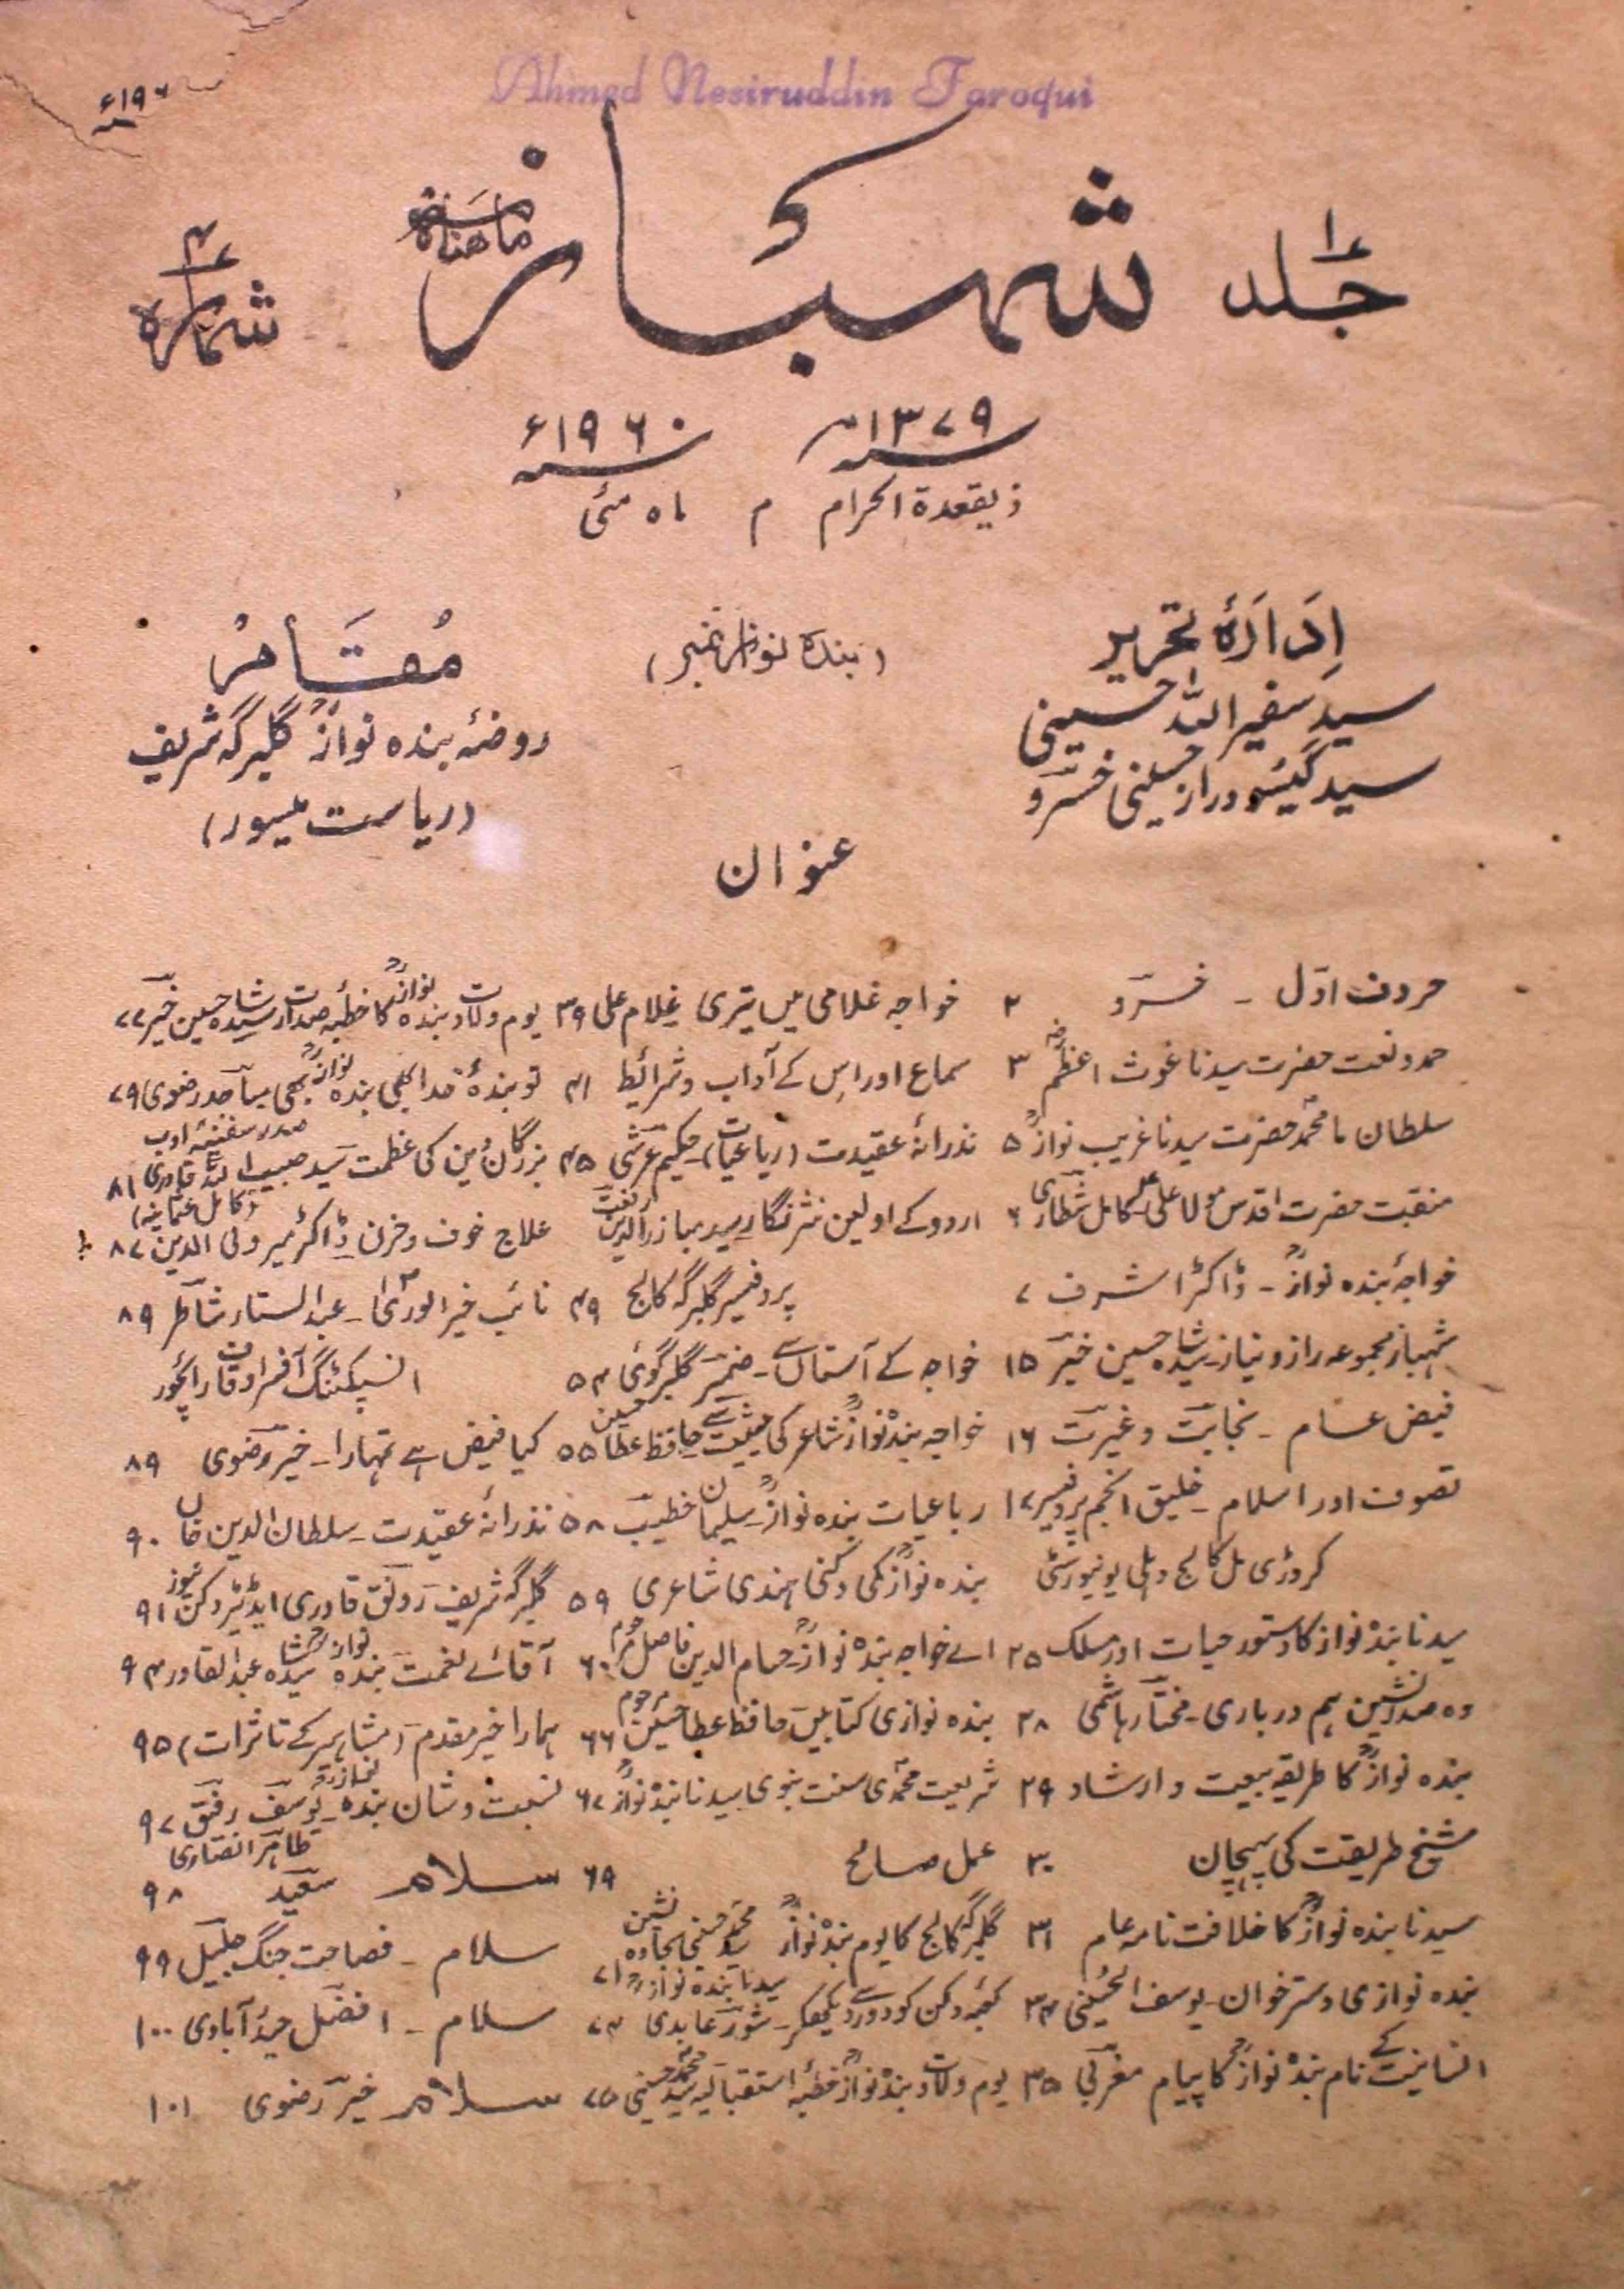 Ahmed Nesiruddin Faroqui
۱۹۶۰ء
ماھنامہ
شہباز
جلد ۱
شمارہ ۴
۱۳۷۹ھ ۱۹۶۰ء
ذیقعدۃ الحرام م ماہ مئی
ادارۂ تحریر
سید سفیر اللہ حسینی
سید گیسو دراز حسینی خسرو
(بندہ نواز نمبر)
مقام
روضۂ بندہ نوازؒ گلبرگہ شریف
(ریاست میسور)
عنوان
حروف اوّل - خسرو ۲
حمد و نعت حضرت سیدنا غوث اعظمؓ ۳
سلطان ما محمدؐ حضرت سیدنا غریب نوازؒ ۵
منقبت حضرت اقدس مولا علیؑ کامل شطاری ۶
خواجۂ بندہ نوازؒ - ڈاکٹر اشرف ۷
شہباز مجموعہ راز و نیاز سید شاہ حسین خیر ۱۵
فیض عام - نجابت و غیرت ۱۶
تصوف اور اسلام - خلیق انجم پروفیسر ۱۷
کروڑی مل کالج دہلی یونیورسٹی
سیدنا بندہ نواز کا دستور حیات اور مسلک ۲۵
وہ صدر نشیں ہم درباری - مختار ہاشمی ۲۸
بندہ نوازؒ کا طریقہ بیعت و ارشاد ۲۹
شیخ طریقت کی پہچان ۳۰
سیدنا بندہ نوازؒ کا خلافت نامہ عام ۳۱
بندہ نوازی دسترخوان - یوسف الحسینی ۳۴
انسانیت کے نام بندہ نوازؒ کا پیام مغربی ۳۵
خواجہ غلامی میں تیری غلام علی ۳۹
سماع اور اس کے آداب و شرائط ۴۱
نذرانۂ عقیدت (رباعیات) - حکیم عرشی ۴۵
اردو کے اولین نثر نگار - سید مبارز الدین رفعت
پروفیسر گلبرگہ کالج ۴۹
خواجہ کے آستاں سے - ضمیر گلبرگوی ۵۴
خواجہ بندہ نوازؒ شاعر کی حیثیت سے حافظ عطا حسین ۵۵
رباعیات بندہ نوازؒ - سلیمان خطیب ۵۸
بندہ نوازؒ کی دکنی ہندی شاعری ۵۹
اے خواجہ بندہ نوازؒ - حسام الدین فاضل مرحوم ۶۰
بندہ نوازی کتابیں حافظ عطا حسین مرحوم ۶۶
شریعت محمدیؐ سنت نبوی سیدنا بندہ نوازؒ ۶۷
عمل صالح ۶۹
گلبرگہ کالج کا یوم بندہ نوازؒ سید محمد حسینی سجادہ نشین سیدنا بندہ نوازؒ ۷۱
کعبۂ دکن کو دور سے دیکھکر - شور عابدی ۷۴
یوم ولادت بندہ نوازؒ خطبۂ استقبالیہ سید محمد حسینی ۷۵
یوم ولادت بندہ نوازؒ کا خطبۂ صدارت سید شاہ حسین خیر ۷۷
تو بندۂ خدا بھی بندہ نوازؒ بھی صدر رضوی ۷۹
صدر سفینۂ ادب
بزرگان دین کی عظمت سید حبیب اللہ قادری ۸۱
(کامل عثمانیہ)
علاج خوف و حزن - ڈاکٹر میر ولی الدین ۸۷
نائب خیر الوریٰ - عبدالستار شاطر ۸۹
انسپکٹنگ آفسر اوقاف رائچور
کیا فیض ہے تمہارا - خیر رضوی ۸۹
نذرانۂ عقیدت - سلطان الدین خاں ۹۰
گلبرگہ شریف رونق قادری ایڈیٹر دکن نیوز ۹۱
آقائے نعمت بندہ نوازؒ سید شاہ عبدالقادر ۹۴
ہمارا خیر مقدم (مشاہیر کے تاثرات) ۹۵
نسبت و شان بندہ نوازؒ - یوسف رفیق ۹۷
طاہر انصاری
سلام سعید ۹۸
سلام - فصاحت جنگ جلیل ۹۹
سلام - افضل حیدرآبادی ۱۰۰
سلام خیر رضوی ۱۰۱